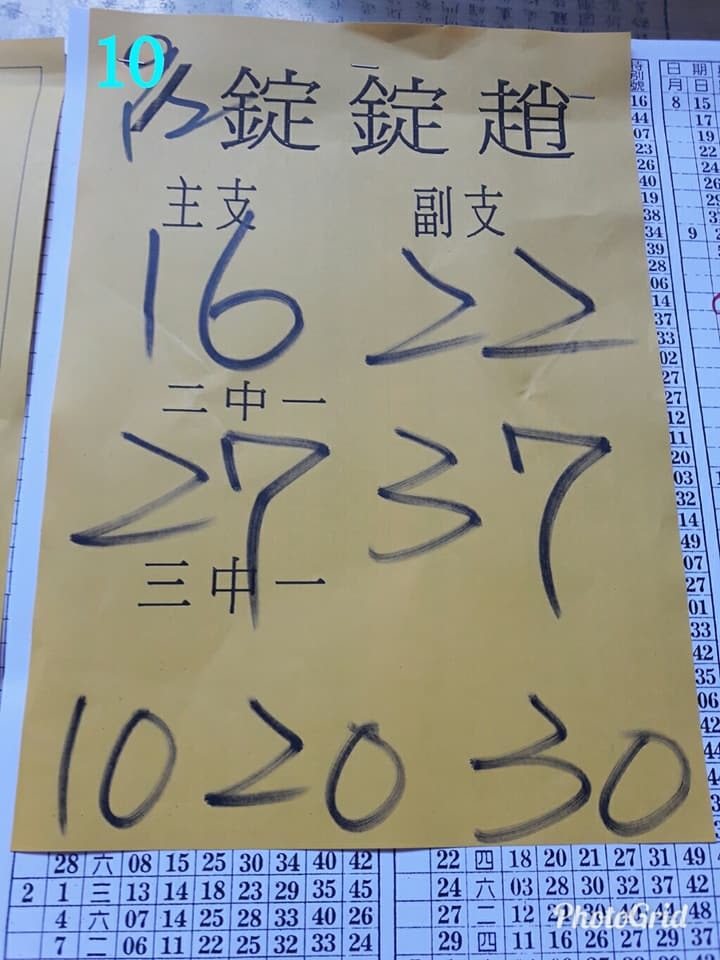 10
錠錠趙
主支 副支
16 22
二中一
27 37
三中一
10 20 30
日 期
月 日
16 8 15
44 17
07 19
23 22
26 24
40 26
19
38
34 9
39
28
06
14
37
33
02
27
27
12
11
20
03
32
14
49
07
27
01
33
42
35
06
42
44
28 六 08 15 25 30 34 40 42 22 四 18 20 21 27 31 49
2 1 三 13 14 18 23 29 35 45 24 六 03 28 30 32 37 42
4 六 07 14 25 28 33 40 26 27 二 12 48
7 二 06 11 22 25 32 33 24 29 四 11 16 26 27 29 37
PhotoGrid